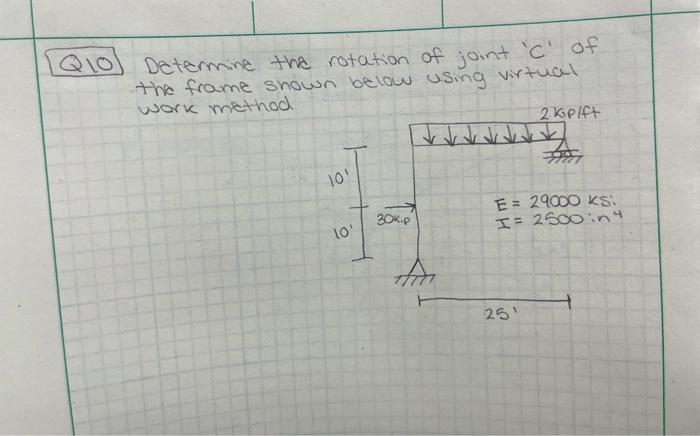 Q10 Determine the rotation of joint 'C' of
the frame shown below using virtual
work method
2 kip/ft
10'
E = 29000 ksi
30kip
I = 2500 in4
10'
25'